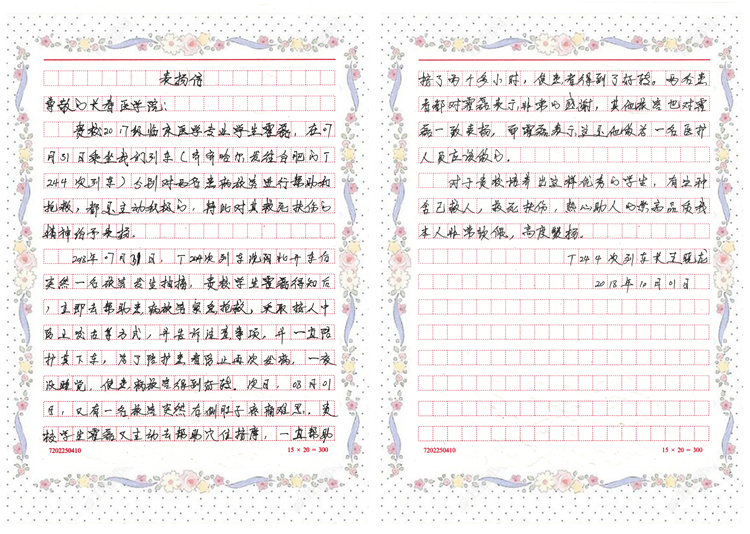 表扬信
尊敬的长春医学院:
贵校2017级临床医学专业学生霍磊,在07
月31日乘坐我们列车(齐齐哈尔发往合肥的T
244次列车)分别对两名患病旅客进行帮助和
抢救,都是主动积极的,特此对其救死扶伤的
精神给予表扬。
2018年07月31日,T244次列车沈阳北开车后
突然一名旅客发生抽搐,贵校学生霍磊得知后
,立即去帮助患病旅客家属抢救,采取掐人中
防止咬舌等方式,并告诉注意事项,并一直陪
护其下车,为了陪护患者防止再次发病,一夜
没睡觉,使患病旅客得到好转。次日,08月01
日,又有一名旅客突然右侧肚子疼痛难忍,贵
校学生霍磊又主动去帮助穴位按摩,一直帮助
7202250410
15 × 20 = 300
按了两个多小时,使患者得到了好转。两名患
者都对霍磊表示非常的感谢,其他旅客也对霍
磊一致表扬,而霍磊表示这是他做为一名医护
人员应该做的。
对于贵校培养出这样优秀的学生,有这种
舍己救人,救死扶伤,热心助人的崇高品质我
本人非常钦佩,高度赞扬。
T244次列车长王晓龙
2018年10月01日
7202250410
15 × 20 = 300